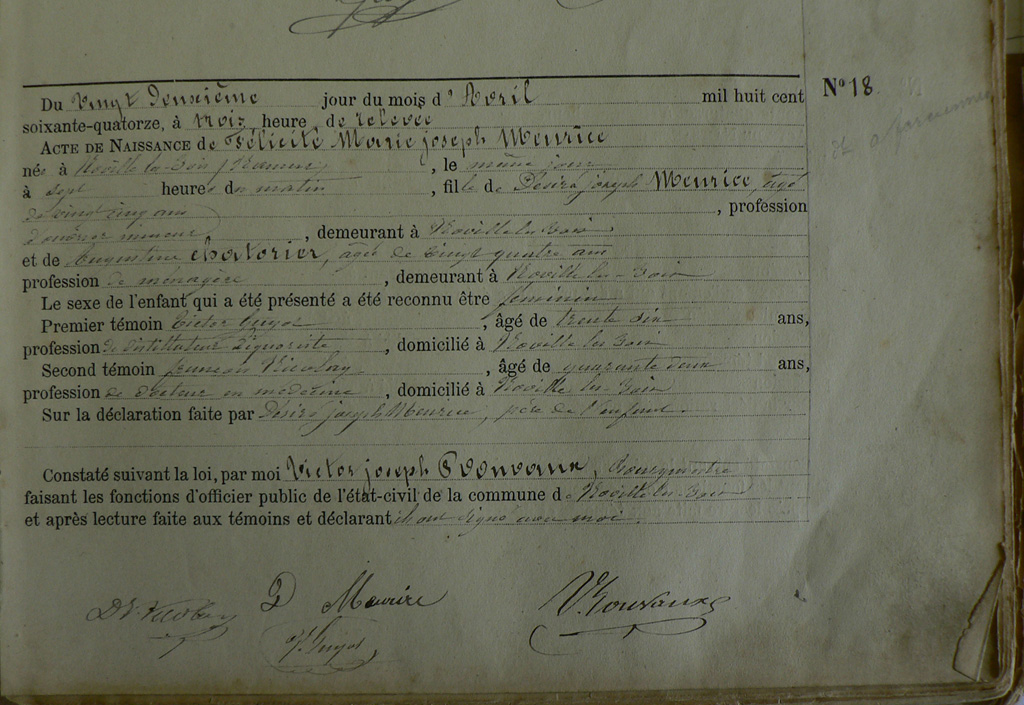 Du vingt deuxième jour du mois d'Avril mil huit cent
N° 18
soixante-quatorze, à trois heure de relevée
ACTE DE NAISSANCE de Félicité Marie joseph Meurice
née à Noville les-Bois, Namur, le même jour
à sept heures du matin, fille de Désiré joseph Meurice, agé
de vingt cinq ans, profession
d'ouvrier mineur, demeurant à Noville les-Bois
et de Augustine chatorier, agée de vingt quatre ans
profession de ménagère, demeurant à Noville les-Bois
Le sexe de l'enfant qui a été présenté a été reconnu être féminin
Premier témoin Victor Guyot, âgé de trente six ans,
profession de distillateur liquoriste, domicilié à Noville les Bois
Second témoin Nicolay, âgé de quarante deux ans,
profession de docteur en médecine, domicilié à Noville les-Bois
Sur la déclaration faite par Désiré joseph Meurice, père de l'enfant.
Constaté suivant la loi, par moi Victor joseph, Bourgmestre
faisant les fonctions d'officier public de l'état-civil de la commune de Noville les-Bois
et après lecture faite aux témoins et déclarant ils ont signé avec moi.
D Meurice
V. Guyot